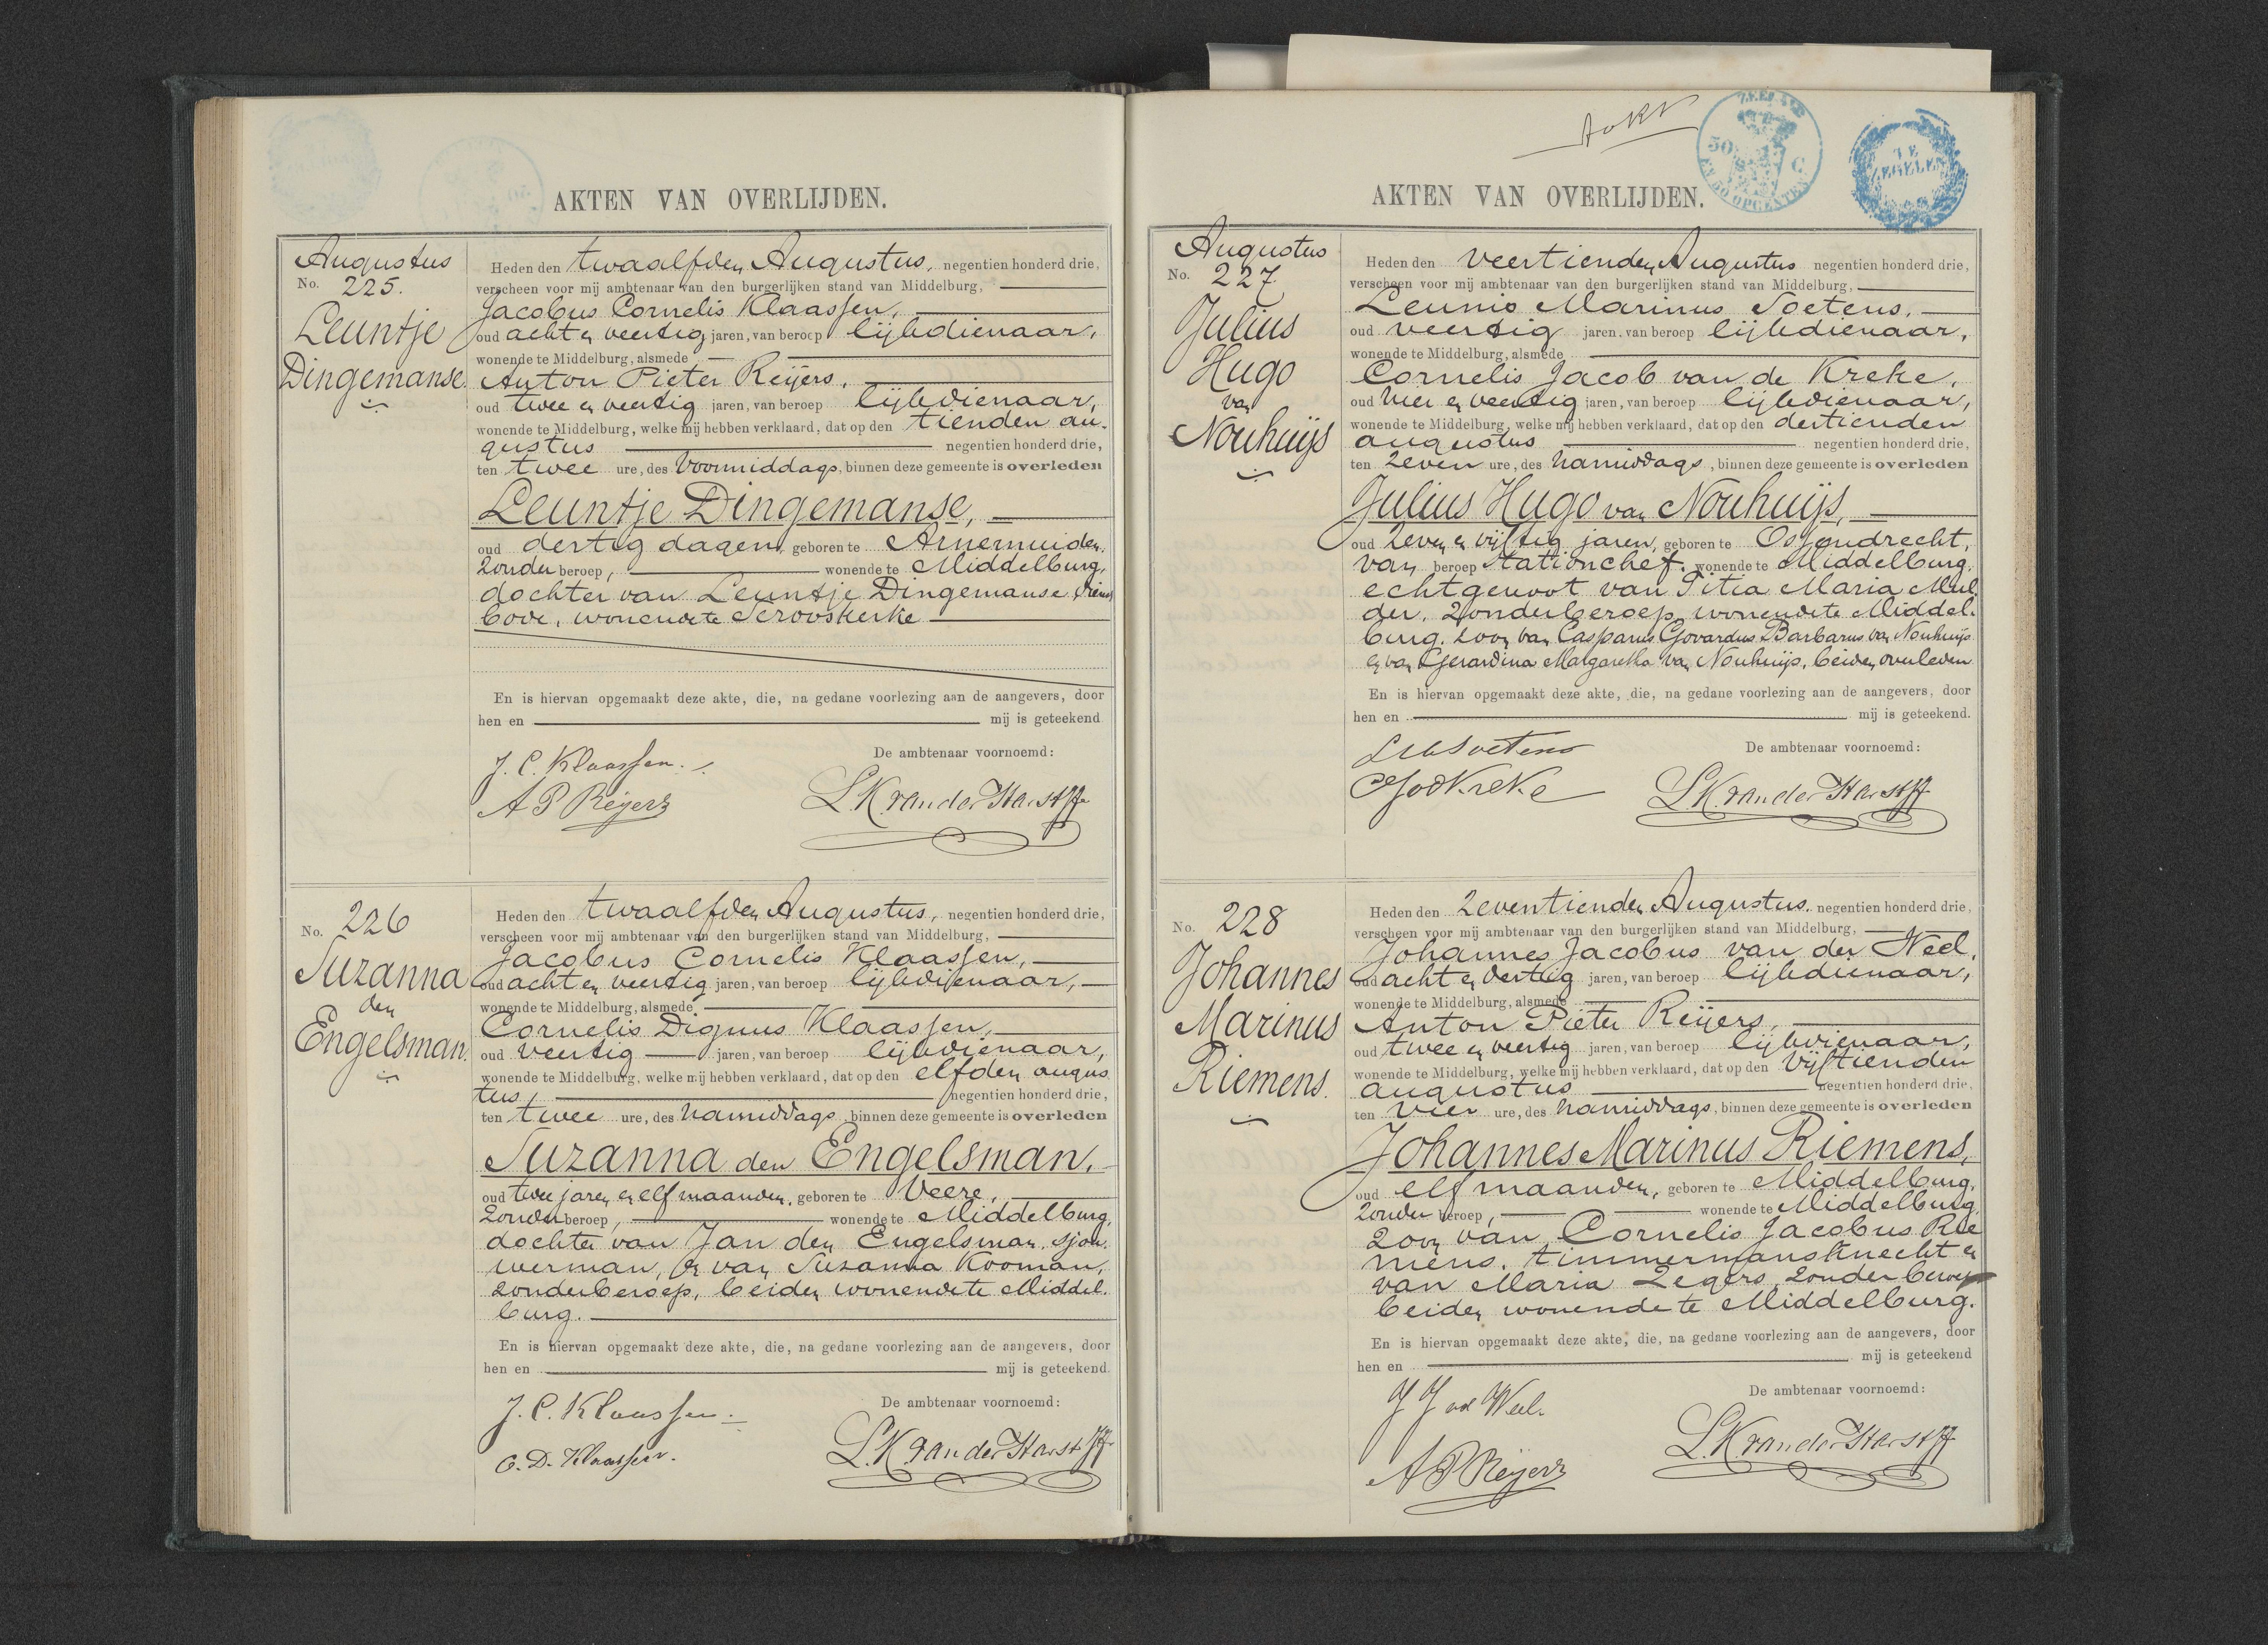 AKTEN VAN OVERLIJDEN.
Augustus
No. 225.
Leuntje
Dingemanse.
Heden den twaalfden Augustus, negentien honderd drie,
verscheen voor mij ambtenaar van den burgerlijken stand van Middelburg,
Jacobus Cornelis Klaassen,
oud acht en veertig jaren, van beroep lijkdienaar,
wonende te Middelburg, alsmede
Anton Pieter Reijers,
oud twee en veertig jaren, van beroep lijkdienaar,
wonende te Middelburg, welke mij hebben verklaard, dat op den tienden au-
gustus negentien honderd drie,
ten twee ure, des voormiddags, binnen deze gemeente is overleden
Leuntje Dingemanse,
oud dertig dagen, geboren te Arnemuiden,
zonder beroep, wonende te Middelburg,
dochter van Leuntje Dingemanse, dienst
bode, wonende te Serooskerke
En is hiervan opgemaakt deze akte, die, na gedane voorlezing aan de aangevers, door
hen en mij is geteekend
De ambtenaar voornoemd:
J. C. Klaassen.
A P Reijers
L.K. van der Harst
No. 226
Suzanna
den
Engelsman.
Heden den twaalfden Augustus, negentien honderd drie,
verscheen voor mij ambtenaar van den burgerlijken stand van Middelburg,
Jacobus Cornelis Klaassen,
oud acht en veertig jaren, van beroep lijkdienaar,
wonende te Middelburg, alsmede
Cornelis Dignus Klaassen,
oud veertig jaren, van beroep lijkdienaar,
wonende te Middelburg, welke mij hebben verklaard, dat op den elfden augus
tus, negentien honderd drie,
ten twee ure, des namiddags, binnen deze gemeente is overleden
Suzanna den Engelsman,
oud twee jaren en elf maanden, geboren te Veere,
zonder beroep, wonende te Middelburg,
dochter van Jan den Engelsman, sjou-
werman, en van Susanna Kooman,
zonder beroep, beiden wonende te Middel-
burg.
En is hiervan opgemaakt deze akte, die, na gedane voorlezing aan de aangevers, door
hen en mij is geteekend.
De ambtenaar voornoemd:
J. C. Klaassen.
C. D. Klaassen.
L.K. van der Harst
ZEELAND
50 C
EN 50 OPCENTEN
TE
ZEGELEN
AKTEN VAN OVERLIJDEN.
Augustus
No. 227.
Julius
Hugo
van
Nouhuijs
Heden den veertienden Augustus negentien honderd drie,
verscheen voor mij ambtenaar van den burgerlijken stand van Middelburg,
Leunis Marinus Soetens,
oud veertig jaren, van beroep lijkdienaar,
wonende te Middelburg, alsmede
Cornelis Jacob van de Kreke,
oud vier en veertig jaren, van beroep lijkdienaar,
wonende te Middelburg, welke mij hebben verklaard, dat op den dertienden
augustus negentien honderd drie,
ten zeven ure, des namiddags, binnen deze gemeente is overleden
Julius Hugo van Nouhuijs,
oud zeven en vijftig jaren, geboren te Ossendrecht,
van beroep stationchef. wonende te Middelburg,
echtgenoot van Titia Maria Mul-
der, zonder beroep, wonende te Middel-
burg. zoon van Casparus Govardus Barbarus van Nouhuijs
en van Gerardina Margaretha van Nouhuijs, beiden overleden
En is hiervan opgemaakt deze akte, die, na gedane voorlezing aan de aangevers, door
hen en mij is geteekend.
De ambtenaar voornoemd:
LM Soetens
CJvdKreke
L.K. van der Harst
No. 228
Johannes
Marinus
Riemens.
Heden den zeventienden Augustus, negentien honderd drie,
verscheen voor mij ambtenaar van den burgerlijken stand van Middelburg,
Johannes Jacobus van der Weel,
oud acht en dertig jaren, van beroep lijkdienaar,
wonende te Middelburg, alsmede
Anton Pieter Reijers,
oud twee en veertig jaren, van beroep lijkdienaar,
wonende te Middelburg, welke mij hebben verklaard, dat op den vijftienden
augustus negentien honderd drie,
ten vier ure, des namiddags, binnen deze gemeente is overleden
Johannes Marinus Riemens,
oud elf maanden, geboren te Middelburg,
zonder beroep, wonende te Middelburg,
zoon van Cornelis Jacobus Rie
mens, timmermansknecht en
van Maria Zegers, zonder beroep
beiden wonende te Middelburg.
En is hiervan opgemaakt deze akte, die, na gedane voorlezing aan de aangevers, door
hen en mij is geteekend
De ambtenaar voornoemd:
J J vd Weel.
A P Reijers
L.K. van der Harst